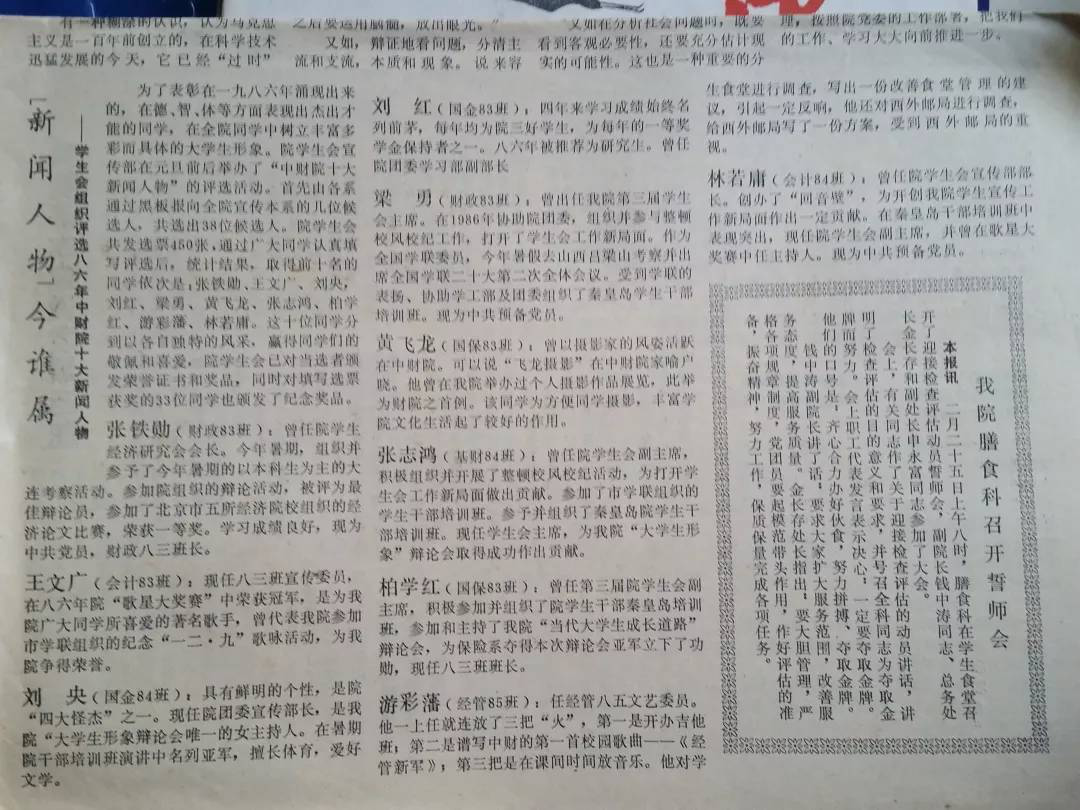 有一种糊涂的认识，认为马克思
主义是一百年前创立的，在科学技术
迅猛发展的今天，它已经“过时”
之后要运用脑髓，放出眼光。”
又如，辩证地看问题，分清主
流和支流，本质和现象。说来容
又如在分析社会问题时，既要
看到客观必要性，还要充分估计现
实的可能性。这也是一种重要的分
理，按照院党委的工作部署，把我们
的工作、学习大大向前推进一步。
「新闻人物」今谁属
——学生会组织评选八六年中财院十大新闻人物
为了表彰在一九八六年涌现出来
的，在德、智、体等方面表现出杰出才
能的同学，在全院同学中树立丰富多
彩而具体的大学生形象。院学生会宣
传部在元旦前后举办了“中财院十大
新闻人物”的评选活动。首先由各系
通过黑板报向全院宣传本系的几位候
选人，共选出38位候选人。院学生会
共发选票450张，通过广大同学认真填
写评选后，统计结果，取得前十名的
同学依次是：张铁勋、王文广、刘央，
刘红、梁勇、黄飞龙、张志鸿、柏学
红、游彩藩、林若庸。这十位同学分
别以各自独特的风采，赢得同学们的
敬佩和喜爱，院学生会已对当选者颁
发荣誉证书和奖品，同时对填写选票
获奖的33位同学也颁发了纪念奖品。
张铁勋（财政83班）：曾任院学生
经济研究会会长。今年暑期，组织并
参予了今年暑期的以本科生为主的大
连考察活动。参加院组织的辩论活动，被评为最
佳辩论员，参加了北京市五所经济院校组织的经
济论文比赛，荣获一等奖。学习成绩良好，现为
中共党员，财政八三班长。
王文广（会计83班）：现任八三班宣传委员，
在八六年院“歌星大奖赛”中荣获冠军，是为我
院广大同学所喜爱的著名歌手，曾代表我院参加
市学联组织的纪念“一二·九”歌咏活动，为我
院争得荣誉。
刘　央（国金84班）：具有鲜明的个性，是院
“四大怪杰”之一。现任院团委宣传部长，是我
院“大学生形象辩论会唯一的女主持人。在暑期
院干部培训班演讲中名列亚军，擅长体育，爱好
文学。
刘　红（国金83班）：四年来学习成绩始终名
列前茅，每年均为院三好学生，为每年的一等奖
学金保持者之一。八六年被推荐为研究生。曾任
院团委学习部副部长
梁　勇（财政83班）：曾出任我院第三届学生
会主席。在1986年协助院团委，组织并参与整顿
校风校纪工作，打开了学生会工作新局面。作为
全国学联委员，今年暑假去山西吕梁山考察并出
席全国学联二十大第二次全体会议。受到学联的
表扬、协助学工部及团委组织了秦皇岛学生干部
培训班。现为中共预备党员。
黄飞龙（国保83班）：曾以摄影家的风姿活跃
在中财院。可以说“飞龙摄影”在中财院家喻户
晓。他曾在我院举办过个人摄影作品展览，此举
为财院之首例。该同学为方便同学摄影，丰富学
院文化生活起了较好的作用。
张志鸿（基财84班）：曾任院学生会副主席，
积极组织并开展了整顿校风校纪活动，为打开学
生会工作新局面做出贡献。参加了市学联组织的
学生干部培训班。参予并组织了秦皇岛院学生干
部培训班。现任学生会主席，为我院“大学生形
象”辩论会取得成功作出贡献。
柏学红（国保83班）：曾任第三届院学生会副
主席，积极参加并组织了院学生干部秦皇岛培训
班，参加和主持了我院“当代大学生成长道路”
辩论会，为保险系夺得本次辩论会亚军立下了功
勋，现任八三班班长。
游彩藩（经管85班）：任经管八五文艺委员。
他一上任就连放了三把“火”，第一是开办吉他
班；第二是谱写中财的第一首校园歌曲——《经
管新军》；第三把是在课间时间放音乐。他对学
生食堂进行调查，写出一份改善食堂管理的建
议，引起一定反响，他还对西外邮局进行调查，
给西外邮局写了一份方案，受到西外邮局的重
视。
林若庸（会计84班）：曾任院学生会宣传部部
长。创办了“回音壁”，为开创我院学生宣传工
作新局面作出一定贡献。在秦皇岛干部培训班中
表现突出，现任院学生会副主席，并曾在歌星大
奖赛中任主持人。现为中共预备党员。
我院膳食科召开誓师会
本报讯　二月二十五日上午八时，膳食科在学生食堂召
开了迎接检查评估动员誓师会，副院长钱中涛同志、总务处
长金长存和副处长申永富同志参加了大会。
会上，有关同志作了关于迎接检查评估的动员讲话，讲
明了检查评估的目的意义和要求，并号召全科同志为夺取金
牌而努力。会上职工代表发言表示决心：一定要夺取金牌。
他们的口号是：齐心合力办好伙食，努力拼搏、夺取金牌。
钱中涛副院长讲了话，要求大家扩大服务范围，改善服
务态度，提高服务质量。金长存处长指出：要大胆管理，严
格各项规章制度，党团员要起模范带头作用，作好评估的准
备，振奋精神，努力工作，保质保量完成各项任务。